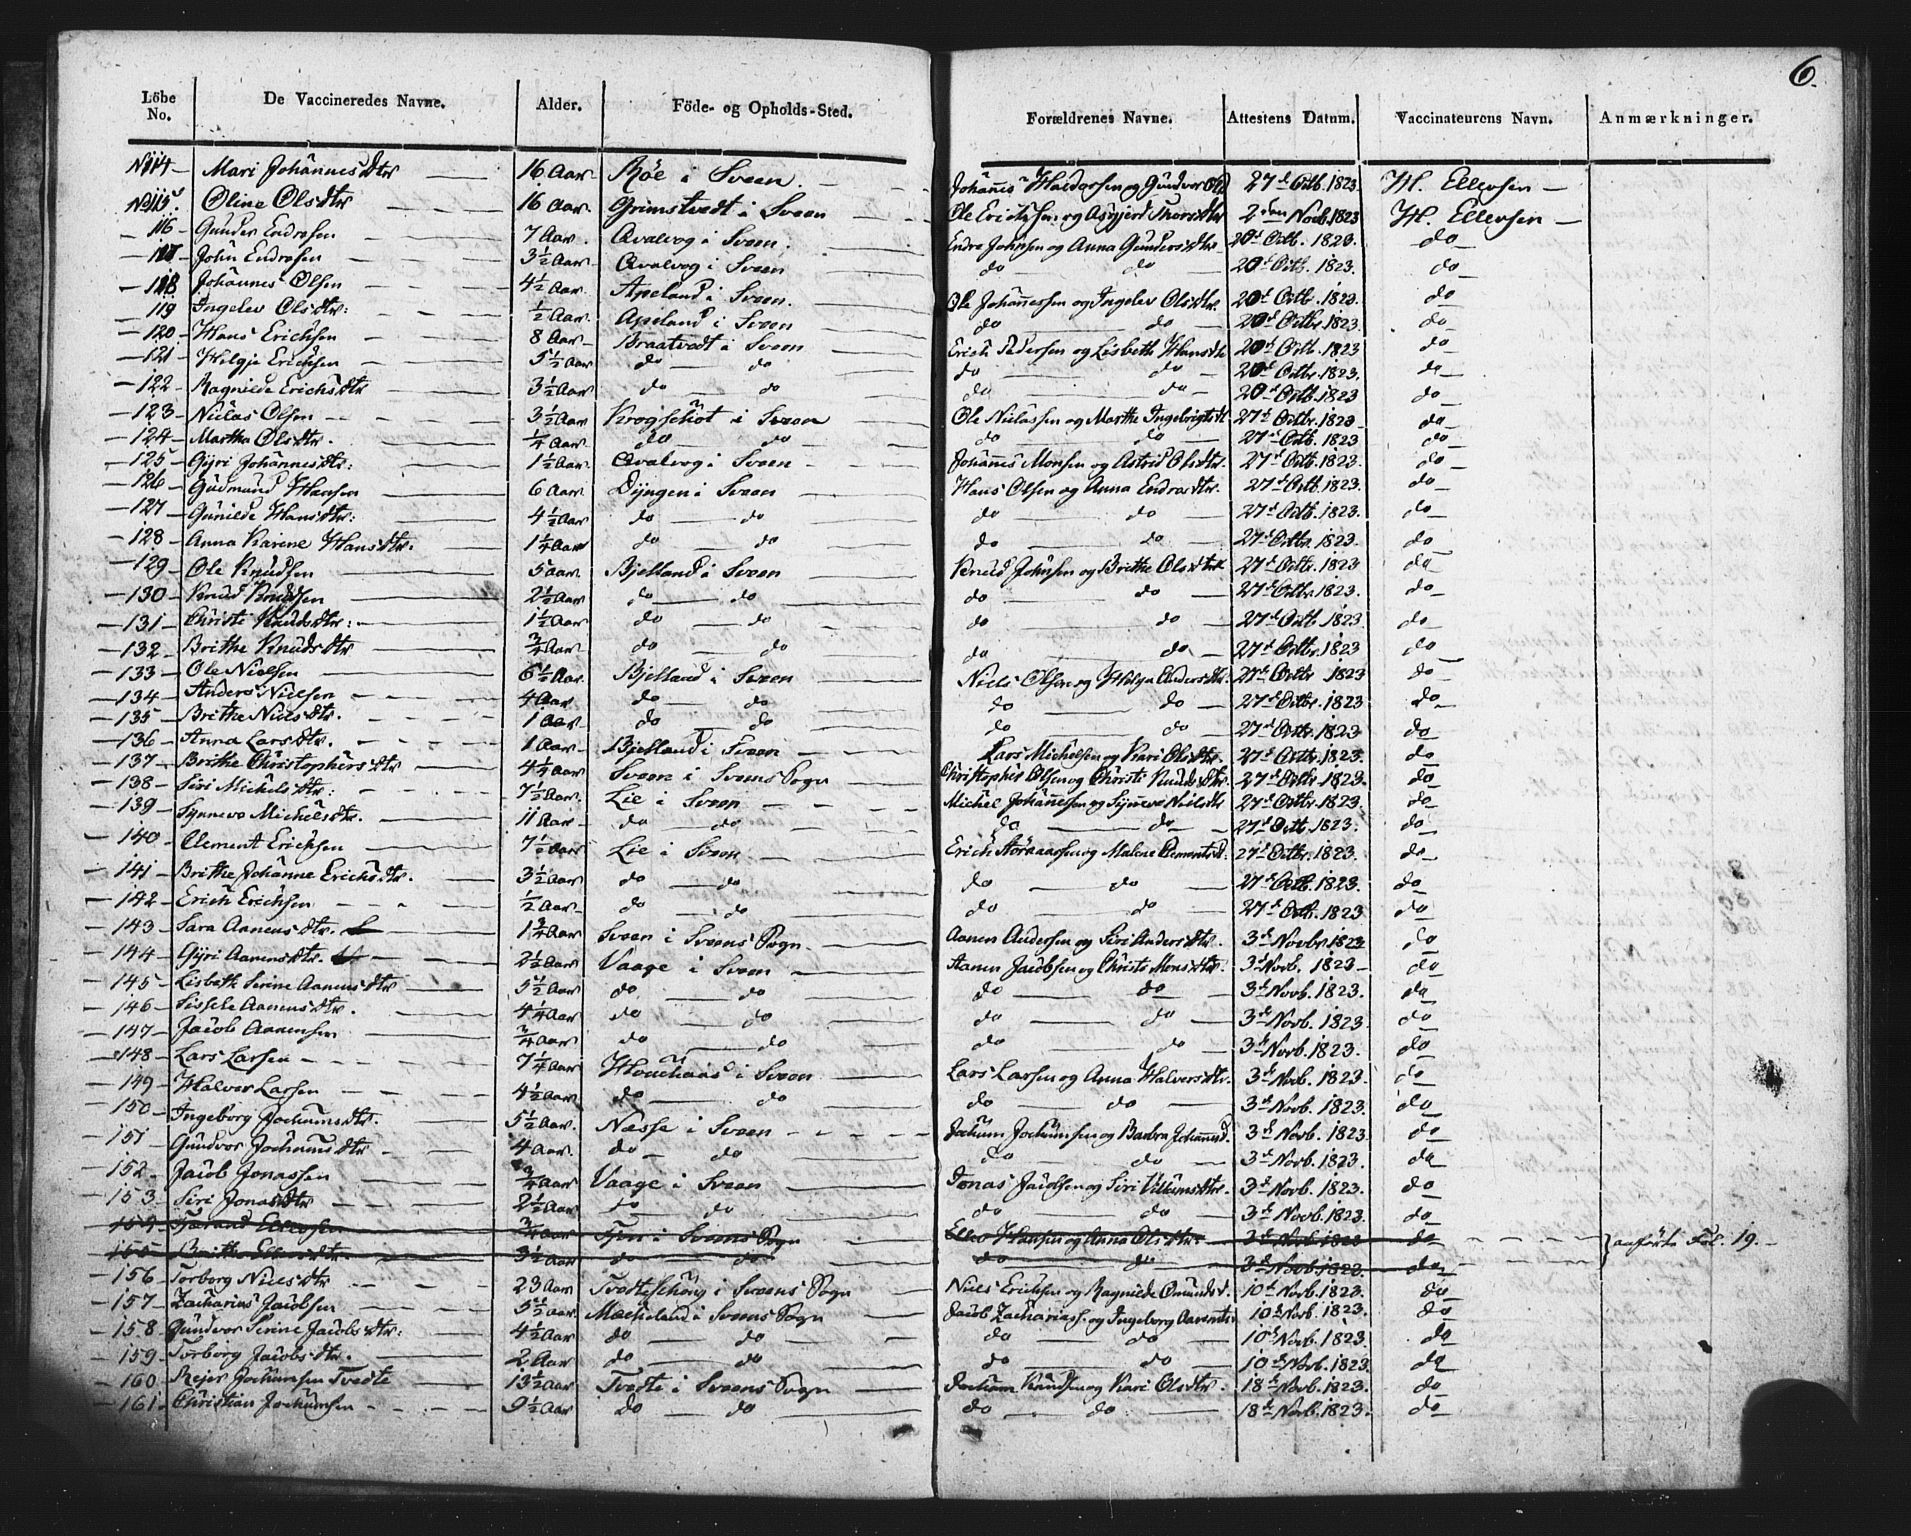 6.
Löbe No. De Vaccineredes Navne. Alder. Föde- og Opholds-Sted. Forældrenes Navne. Attestens Datum. Vaccinateurens Navn. Anmærkninger.
No 114 - Mari Johannesdtr 16 Aar Röe i Sveen Johannes Haldorsen og Gundvor 27d Octb. 1823 H. Ellevsen
No 115 Oline Olsdtr 16 Aar Grimstvedt i Sveen Ole 2den Novb. 1823 H. Ellevsen
116 Gunder Endresen 7 Aar Qvalvog i Sveen Endre Johnsen og Anna Gundersdtr 20d Octb. 1823 do
117 John Endresen 3½ Aar Qvalvog i Sveen do do 20d Octb. 1823 do
118 Johannes Olsen 4½ Aar Apeland i Sveen Ole Johannessen og Ingelev Olsdtr 20d Octb. 1823 do
119 Ingelev Olsdtr: ½ Aar Apeland i Sveen do do 20d Octbr. 1823 do
120 Hans Erichsen 8 Aar Braatvedt i Sveen Erich Pedersen og Lisbeth Hansdtr 20d Octb. 1823 do
121 Helgje Erichsen 5½ Aar do do do do 20d Octbr. 1823 do
122 Ragnilde Erichsdtr 3½ Aar do do do do 20d Octb. 1823 do
123 Niclas Olsen 3½ Aar Krogschöt i Sveen Ole Niclassen og Marthe 27d Octbr. 1823 do
124 Martha Olsdtr. ¼ Aar do do do do 27d Octb. 1823 do
125 Gyri Johannesdtr: 1½ Aar Qvalvog i Sveen Johannes Monsen og Astrid Olsdtr. 27d Octb. 1823 do
126 Gudmund Hansen 6 Aar Dyngen i Sveen Hans Olsen og Anna Endresdtr. 27d Octb. 1823 do
127 Gunilde Hansdtr: 4½ Aar do do do do 27d Octb. 1823 do
128 Anna Karine Hansdtr. 1¼ Aar do do do do 27d Octbr. 1823 do
129 Ole Knudsen 5 Aar Bjelland i Sveen Knud Johnsen og Brithe Olsdtr 27d Octb. 1823 do
130 Knud Knudsen 2½ Aar do do do do 27d Octb. 1823 do
131 Christi Knudsdtr: 1½ Aar do do do do 27d Octb. 1823 do
132 Brithe Knudsdtr ¾ Aar do do do do 27d Octbr. 1823 do
133 Ole Nielsen 6½ Aar Bjelland i Sveen Niels Olsen og Helga Andersdtr. 27d Octbr 1823 do
134 Anders Nielsen 4 Aar do do do do 27d Octbr. 1823 do
135 Brithe Nielsdtr. 1 Aar do do do do 27d Octbr. 1823 do
136 Anna Larsdtr. 1 Aar Bjelland i Sveen Lars Michelsen og Kari Olsdtr. 27d Octbr. 1823 do
137 Brithe Christophersdtr 4¼ Aar Sveen i Sveens Sogn Christopher Olsen og Christi Knudsdtr. 27d Octbr. 1823 do
138 Siri Michelsdtr: 7½ Aar Lie i Sveen Michel Johannessen og Synneve Nielsdtr 27d Octbr. 1823 do
139 Synneve Michelsdtr. 11 Aar do do do do 27d Octb. 1823 do
140 Clement Erichsen 7½ Aar Lie i Sveen Erich og Malene Clementsd. 27d Octbr. 1823 do
141 Brithe Johanne Erichsdtr. 3½ Aar do do do do 27d Octb. 1823 do
142 Erich Erichsen ½ Aar do do do do 27d Octb. 1823 do
143 Sara Aanensdtr. 1¾ Aar Sveen i Sveens Sogn Aanen Andersen og Siri Andersdtr. 3d Novbr. 1823 do
144 Gyri Aanensdtr. 2½ Aar Vaage i Sveen Aanen Jacobsen og Christi Monsdtr. 3d Novb. 1823 do
145 Lisbeth Serine Aanensdtr 5½ Aar do do do do 3d Novb. 1823 do
146 Sissele Aanensdtr. 4¼ Aar do do do do 3d Novb. 1823 do
147 Jacob Aanensen ¾ Aar do do do do 3d Novb. 1823 do
148 Lars Larsen 7¼ Aar i Sveen Lars Larsen og Anna Halversdtr. 3d Novb. 1823 do
149 Halver Larsen 4½ Aar do do do do 3d Novb. 1823 do
150 Ingeborg Jochumsdtr. 5½ Aar Næsse i Sveen Jochum Jochumsen og Barbra Johannesd. 3d Novb. 1823 do
151 Gundvor Jochumsdtr 4 Aar do do do do 3d Novb. 1823 do
152 Jacob Jonassen ¾ Aar Vaage i Sveen Jonas Jacobsen og Siri Villumsdtr. 3d Novb. 1823 do
153 Siri Jonasdtr 2½ Aar do do do do 3d Novb. 1823 do
154 Ellevsen ¾ Aar Tjen i Sveens Sogn Ellev Hansen og Anna Olsdtr. 3d Novb. 1823 do } anförte Fol. 19.
155 Brithe Ellevsdtr 3½ Aar do do do do 3d Novb. 1823 do
156 Torborg Nielsdtr 23 Aar i Sveens Sogn Niels Erichsen og Ragnilde Omundsd. 10d Novb. 1823 do
157 Zacharias Jacobsen 5½ Aar Mæheland i Sveens Sogn Jacob Zachariass. og Ingeborg 10d Novb. 1823 do
158 Gundvor Serine Jacobsdtr: 4½ Aar do do do do 10d Novb. 1823 do
159 Torborg Jacobsdtr. 2 Aar do do do do 10d Novb. 1823 do
160 Rejer Jochumsen Tvedte 13½ Aar Tvedte i Sveens Sogn Jochum Knudsen og Kari Olsdtr. 18d Novb. 1823 do
161 Christian Jochumsen 9½ Aar do do do do 18d Novb. 1823 do